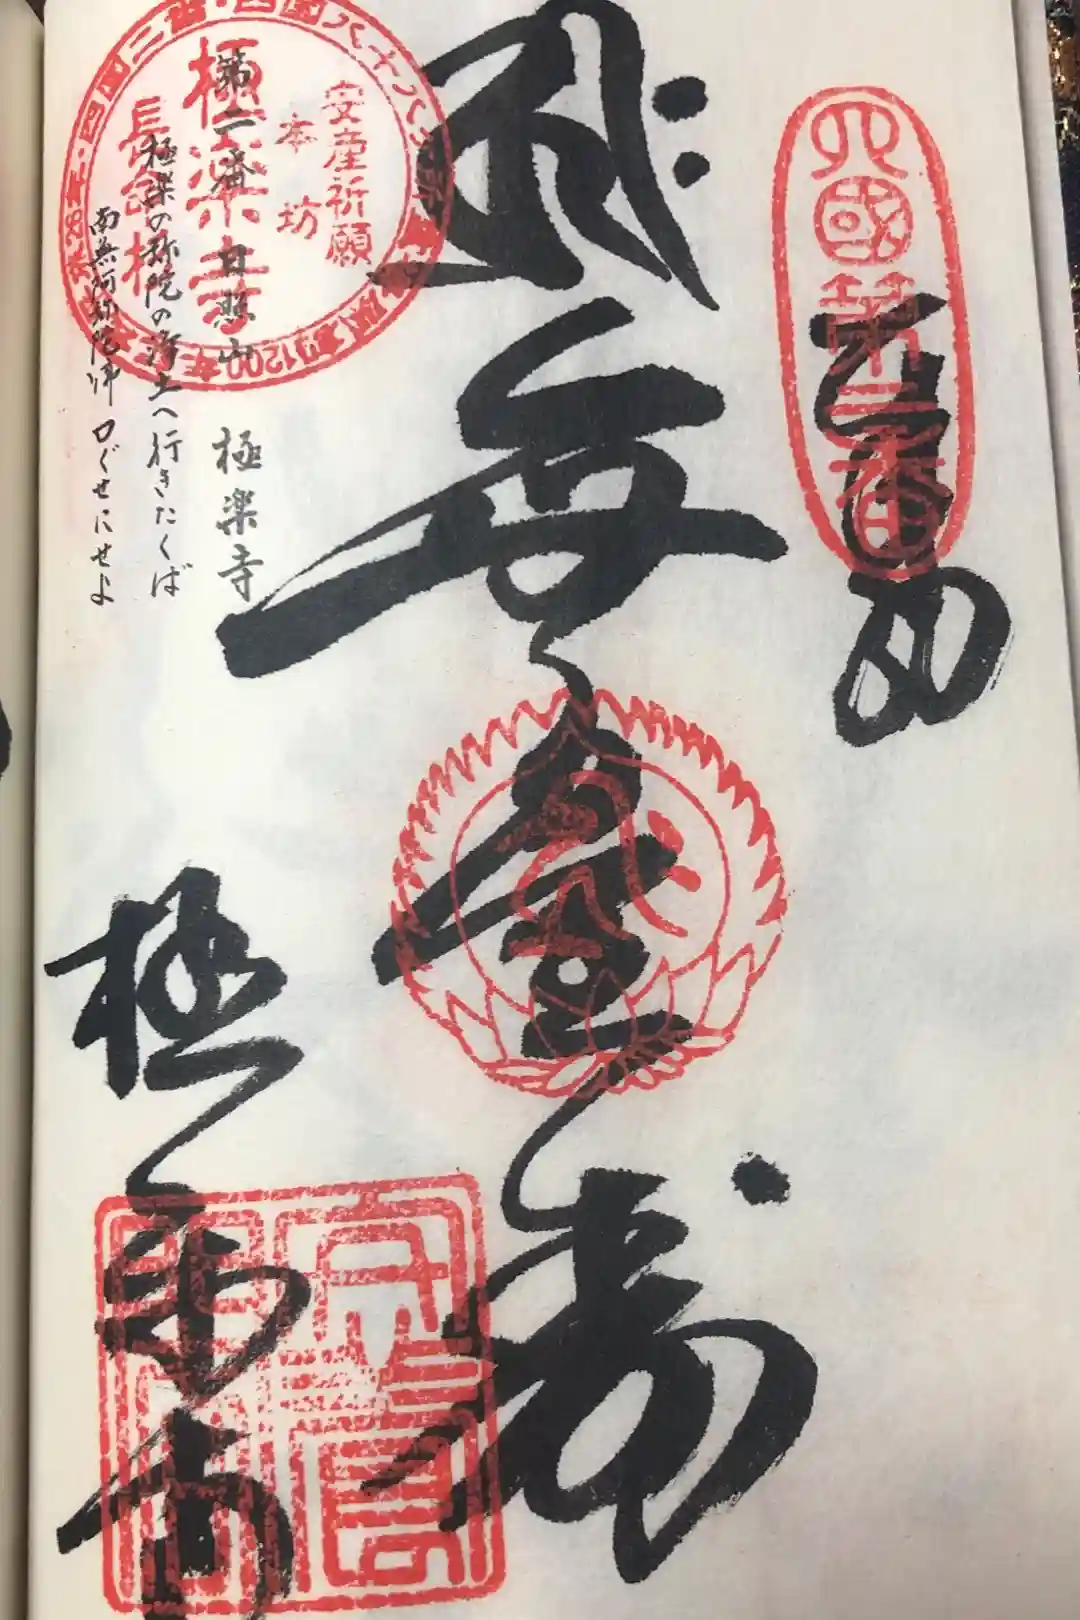 四國第二番
奉納
無量壽
極楽寺
安産祈願
本坊
極楽寺
長命杉
第二番 日照山
極楽寺
極楽の弥陀の浄土へ行きたくば
南無阿弥陀佛口ぐせにせよ